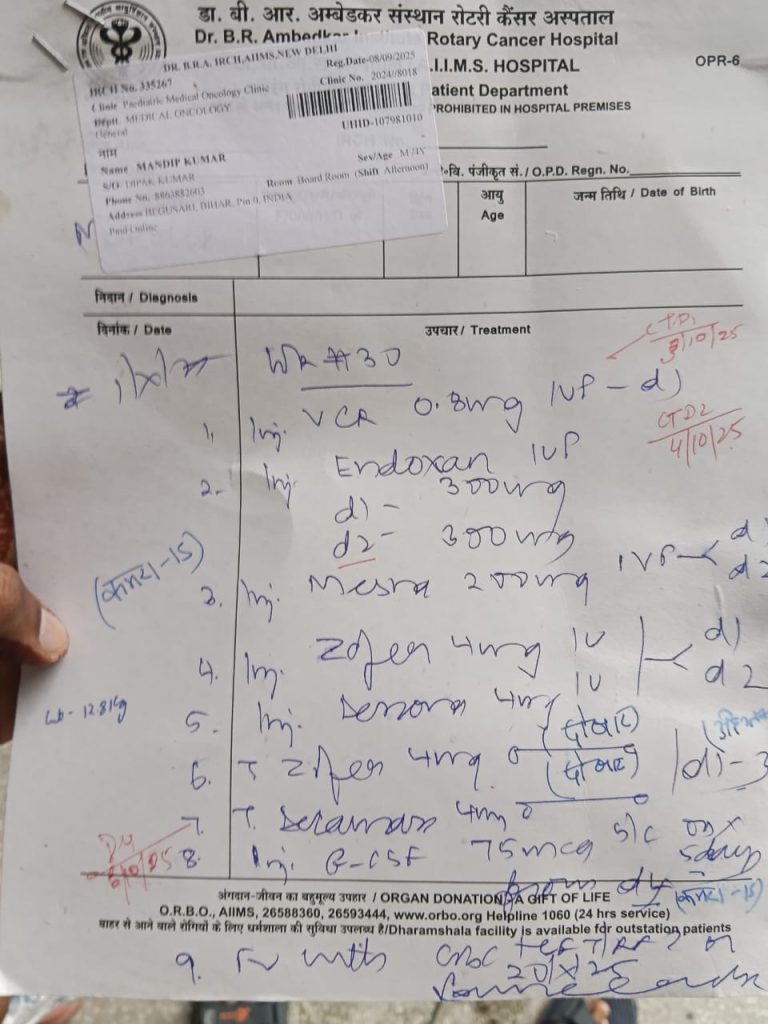 डा. बी. आर. अम्बेडकर संस्थान रोटरी कैंसर अस्पताल
Dr. B.R. Ambedkar Rotary Cancer Hospital
.I.I.M.S. HOSPITAL
OPR-6
atient Department
PROHIBITED IN HOSPITAL PREMISES
DR. B.R.A. IRCH,AIIMS,NEW DELHI
IRCH No. 335267
Reg.Date-08/09/2025
Clinic Paediatric Medical Oncology Clinic
Clinic No. 2024//8018
Deptt. MEDICAL ONCOLOGY
General
UHID-107981010
नाम
Name MANDIP KUMAR
Sex/Age M/4Y
S/O: DIPAK KUMAR
Room. Board Room (Shift Afternoon)
Phone No. 8863882603
Address BEGUSARI, BIHAR, Pin:0, INDIA
Paid Online
पंजीकृत सं./ O.P.D. Regn. No.
आयु
Age
जन्म तिथि / Date of Birth
निदान / Diagnosis
दिनांक / Date
उपचार / Treatment
WK #30
CTD1
3/10/25
1. Inj. VCR 0.8mg IVP - d1
CTD2
4/10/25
2. Inj. Endoxan IVP
d1 - 300mg
d2 - 300mg
3. Inj. Mesna 200mg IVP d1
d2
4. Inj. Zofer 4mg IV d1
d2
Wt - 12.81kg
5. Inj. 4mg IV
6. T Zofer 4mg d1-3
7. T. 4mg
8. Inj. G-CSF 75mcg S/C OD x
5days
from d4
अंगदान-जीवन का बहुमूल्य उपहार / ORGAN DONATION-A GIFT OF LIFE
O.R.B.O., AIIMS, 26588360, 26593444, www.orbo.org Helpline 1060 (24 hrs service)
बाहर से आने वाले रोगियों के लिए धर्मशाला की सुविधा उपलब्ध है/Dharamshala facility is available for outstation patients
9. FU with CBC LFT/RFT on
20/X/25